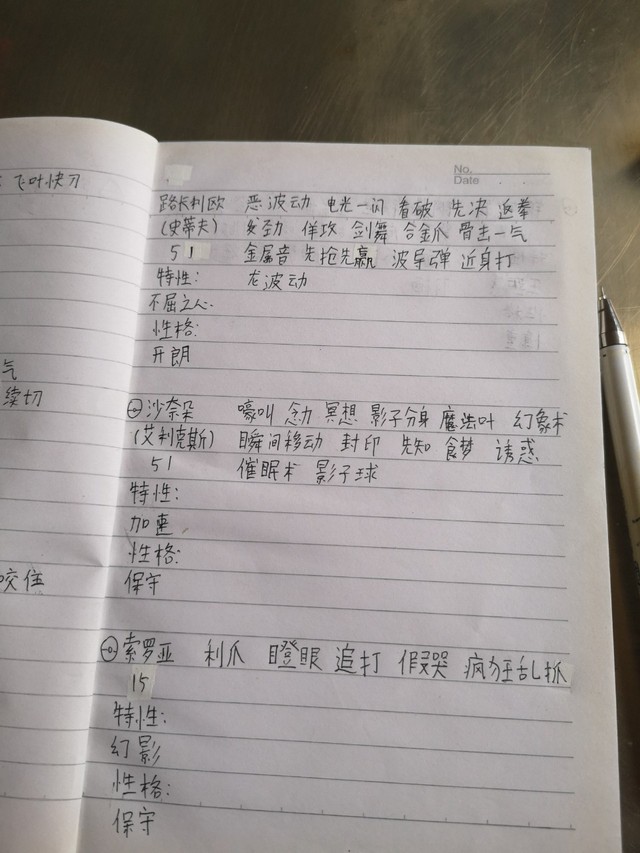 飞叶快刀
气
续切
咬住
No.
Date
路卡利欧 恶波动 电光一闪 看破 先决 返拳
(史蒂夫) 发劲 佯攻 剑舞 合金爪 骨击一气
51 金属音 先抢先赢 波导弹 近身打
特性: 龙波动
不屈之人
性格:
开朗
沙奈朵 嚎叫 念力 冥想 影子分身 魔法叶 幻象术
(艾利克斯) 瞬间移动 封印 先知 食梦 诱惑
51 催眠术 影子球
特性:
加速
性格:
保守
索罗亚 利爪 瞪眼 追打 假哭 疯狂乱抓
15
特性:
幻影
性格:
保守